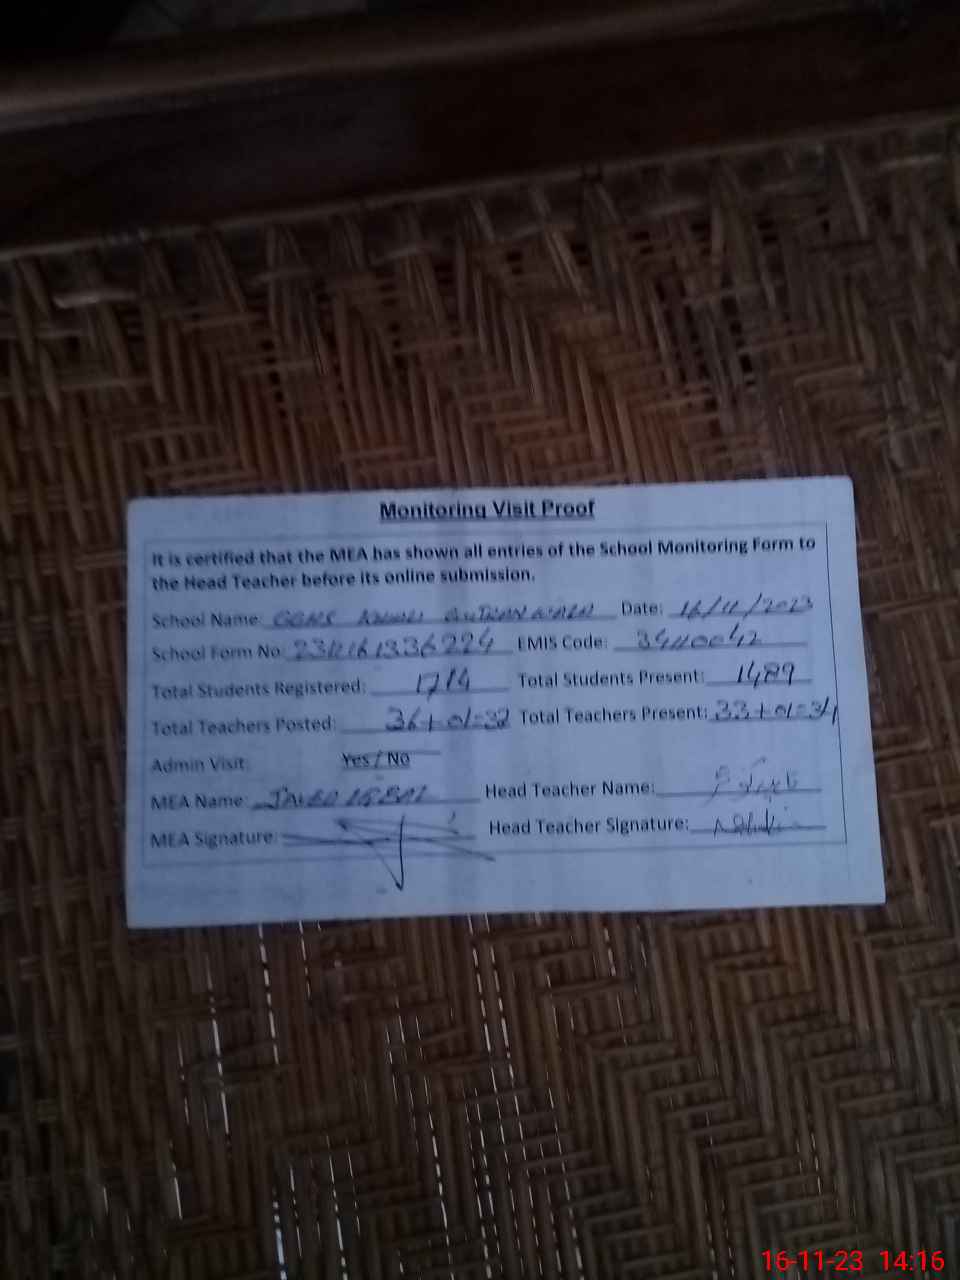 Monitoring Visit Proof
It is certified that the MEA has shown all entries of the School Monitoring Form to
the Head Teacher before its online submission.
School Name: GGHS Date: 16/11/2023
School Form No: 2311161336224 EMIS Code: 34110042
Total Students Registered: 1714 Total Students Present: 1489
Total Teachers Posted: 36+01=37 Total Teachers Present: 33+01=34
Admin Visit: Yes / No
MEA Name: Head Teacher Name:
MEA Signature: Head Teacher Signature:
16-11-23 14:16